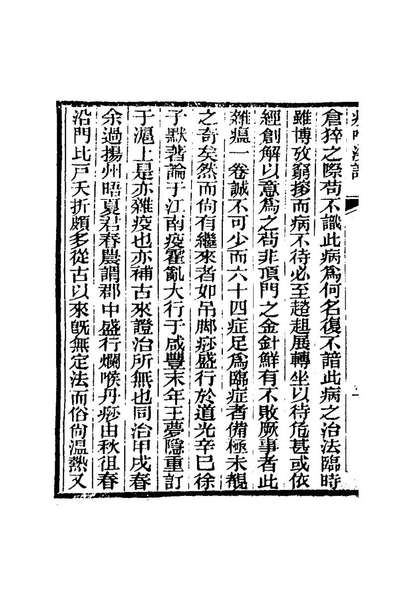 倉猝之際苟不識此病為何名復不諳此病之治法臨時
雖博攷窮搜而病不待必至趦趄展轉坐以待危甚或依
經創解以意為之苟非頂門之金針鮮有不敗厥事者此
雜瘟一卷誠不可少而六十四症足為臨症者備極未覩
之奇矣然而尙有繼來者如吊脚痧盛行於道光辛巳徐
子默著論于江南疫霍亂大行于咸豐末年王夢隱重訂
于滬上是亦雜疫也亦補古來證治所無也同治甲戌春
余過揚州晤夏君春農謂郡中盛行爛喉丹痧由秋徂春
沿門比戶夭折頗多從古以來旣無定法而俗尙溫熱又